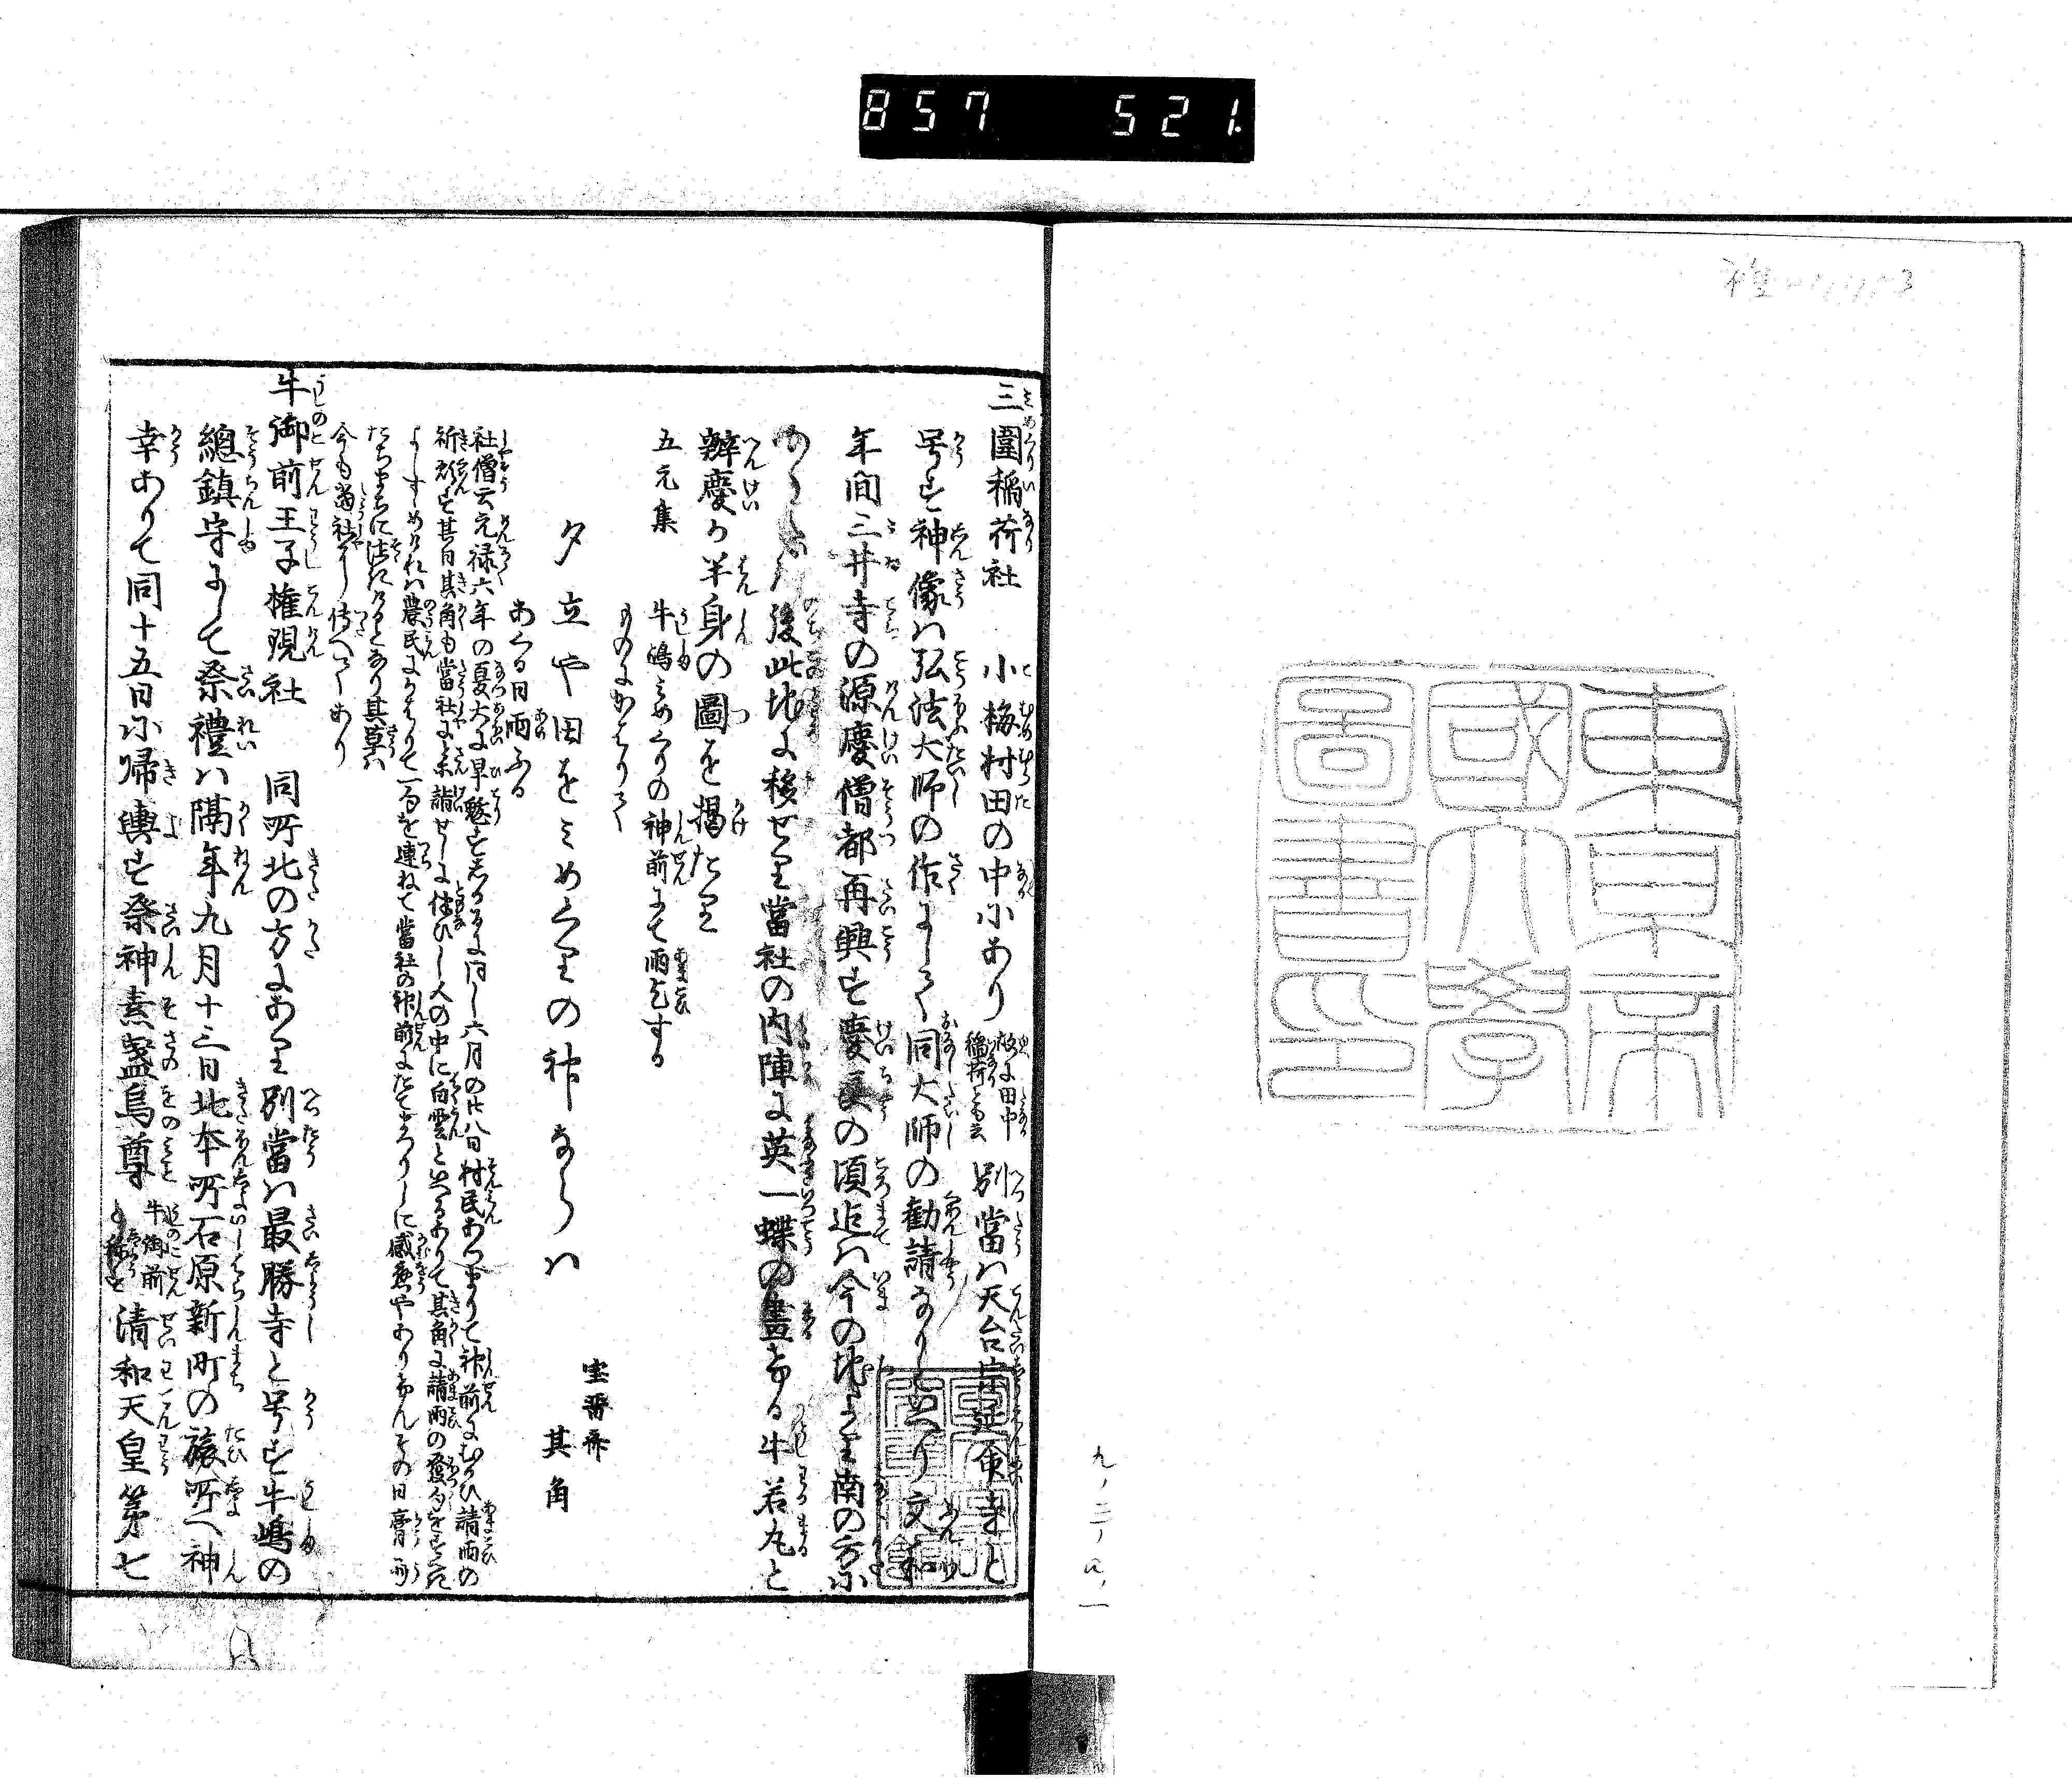 857 521.
東京帝國大學圖書印
三圍稲荷社 小梅村田の中にあり 故に田中稲荷とも云 別當ハ天台宗延命寺と
号す神像ハ弘法大師の作にして同大師の勧請なりといへり文和
年間三井寺の源慶僧都再興す慶長の頃迄ハ今の地より南の方に
ありしか後此地に移せり當社の内陣に英一蝶の畫ける牛若丸と
辨慶か半身の圖を掲たり
五元集
牛嶋みめくりの神前にて雨乞する
ものにかはりて
夕立や田をみめくりの神ならハ
宝晋齋
其角
あくる日雨ふる
社僧云元禄六年の夏大に旱魃すしかるに同し六月の廿八日村民あつまりて神前にむかひ請雨の
祈願す其日其角も當社に参詣せしに伴ひし人の中に白雲といへるありて其角に請雨の發句をすへき
よしすゝめけれハ農民にかはりて一句を連ねて當社の神前にたてまつりしに感應やありけんその日膏雨
たちまちに注きけるとなり其草ハ
今も當社に傳へてあり
牛御前王子権現社 同所北の方にあり別當ハ最勝寺と号す牛嶋の
總鎮守にして祭禮ハ隔年九月十三日北本所石原新町の旅所へ神
幸ありて同十五日に帰輿す祭神素盞烏尊 牛御前と称す 清和天皇第七